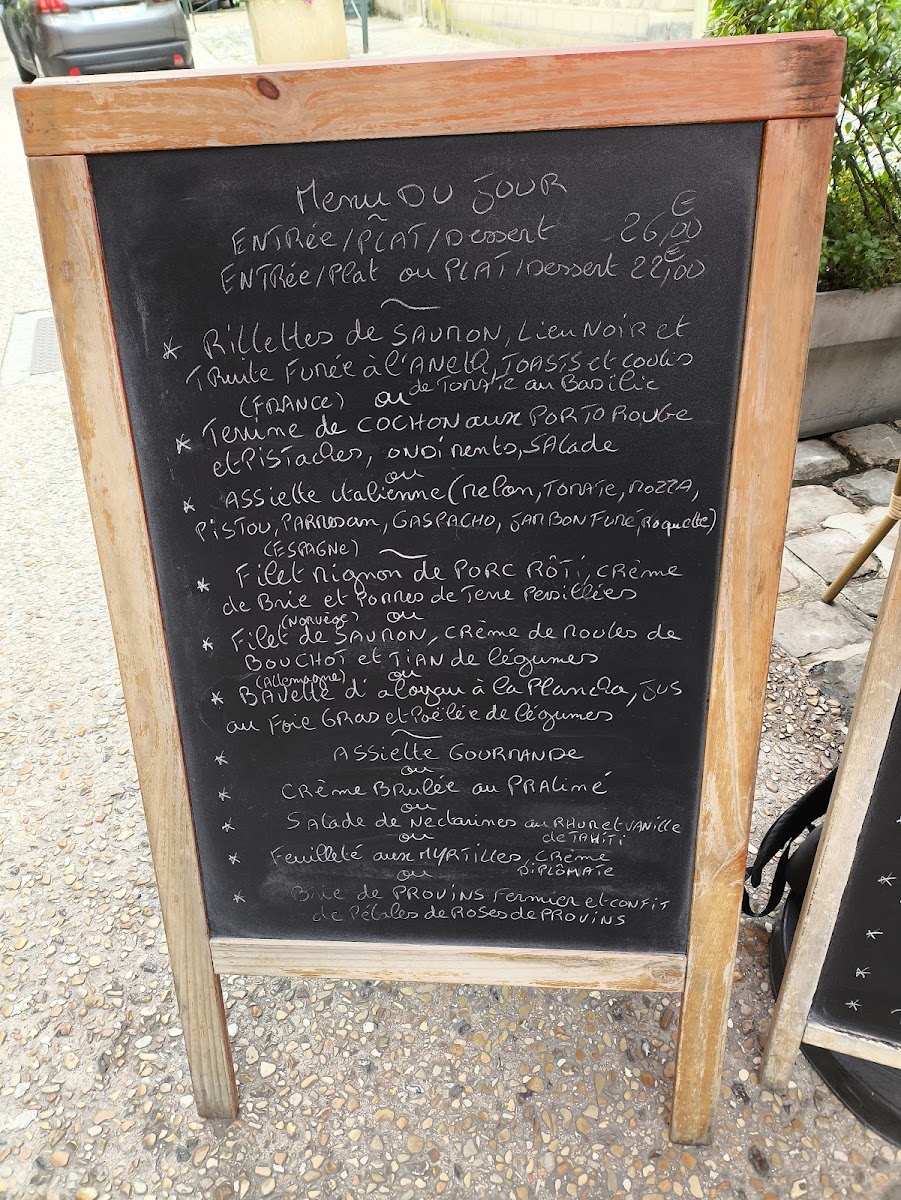 Menu DU JOUR
€
ENTRÉE/PLAT/Dessert 26,00
€
ENTRÉE/Plat ou PLAT/Dessert 22,00
* Rillettes de SAUMON, Lieu NOIR et
TRuite Fumée à l'ANeth, TOASTS et coulis
de TOMATE au Basilic
(FRANCE) ou
* Terrine de COCHON aux PORTO ROUGE
et PISTaches, condiments, SALade
ou
* ASSiette italienne (Melon, TOMATE, MOZZA,
PISTOU, PARMesan, GASPACHO, JAMBON FUMÉ, Roquette)
(ESPAGNe)
* Filet Mignon de PORC RÔTi, CRème
de Brie et POMMes de Terre Persillées
(NORVèGe) ou
* Filet de SAUMON, CRème de Moules de
BOUCHOT et TIAN de légumes
(Allemagne) ou
* BAVette d'aloyau à la Plancha, JUS
au Foie GRAS et Poêlée de légumes
* ASSiette GOURMANDE
ou
* CRème BRulée au PRAliné
ou
* SALade de Nectarines au RHUM et VANille
de TAHiTi
ou
* Feuilleté aux MYRTilles, CRème
DiPLÔMATe
ou
* Brie de PROVINS Fermier et CONFIT
de Pétales de Roses de PROVINS
*
*
*
*